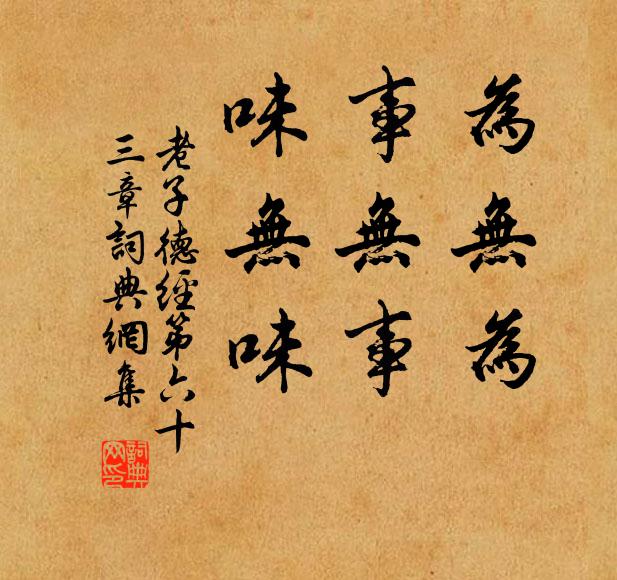 為無為
事無事
味無味
老子德經第六十
三章詞典網集
詞典網印